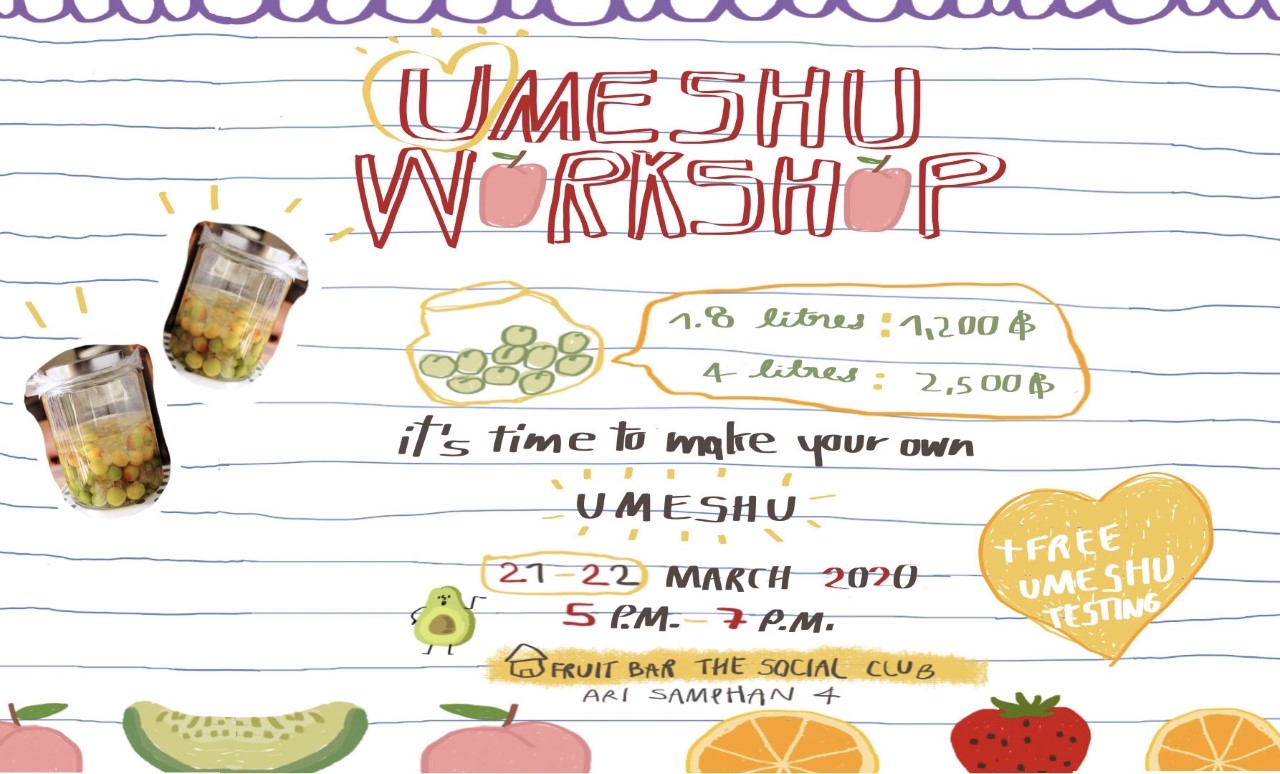 UMESHU
WORKSHOP
1.8 litres : 1,200 ฿
4 litres : 2,500 ฿
it's time to make your own
UMESHU
21-22 MARCH 2020
5 P.M. - 7 P.M.
FRUIT BAR THE SOCIAL CLUB
ARI SAMPHAN 4
+FREE
UMESHU
TESTING